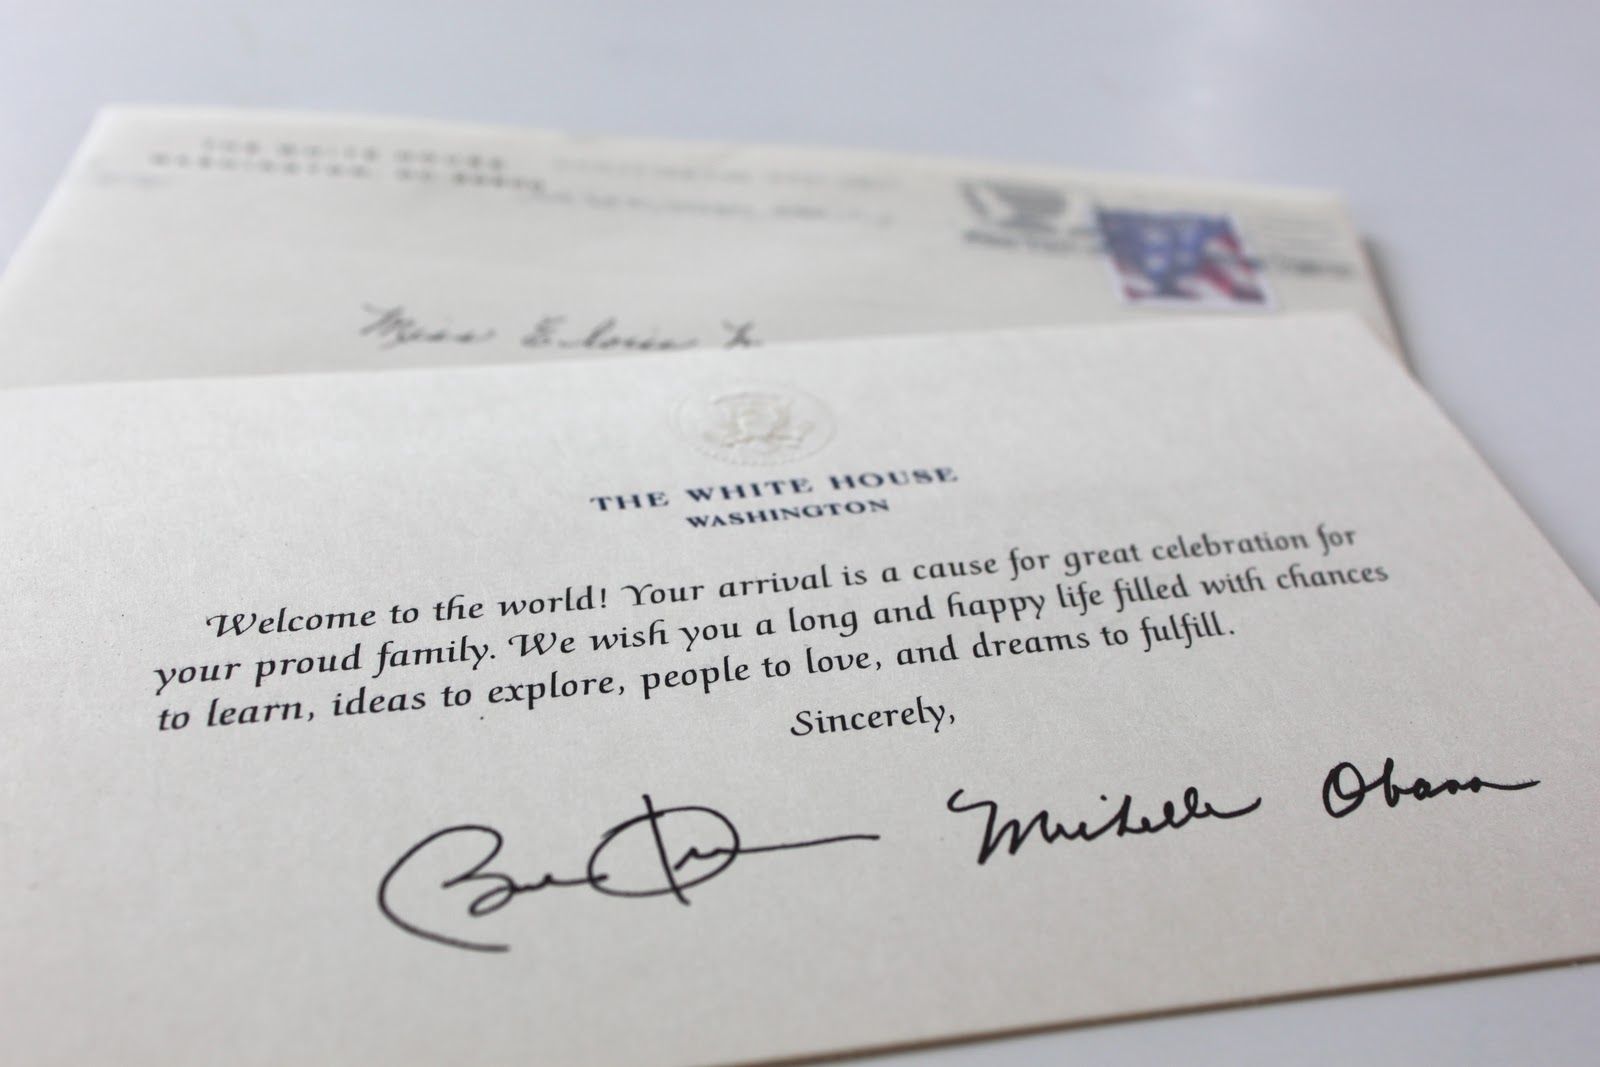 THE WHITE HOUSE
WASHINGTON, DC
Miss Eloise
THE WHITE HOUSE
WASHINGTON
Welcome to the world! Your arrival is a cause for great celebration for
your proud family. We wish you a long and happy life filled with chances
to learn, ideas to explore, people to love, and dreams to fulfill.
Sincerely,
Michelle Obama